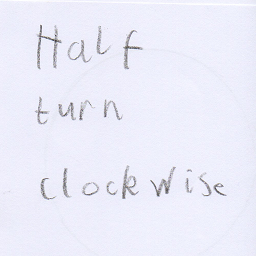 Half
turn
clockwise